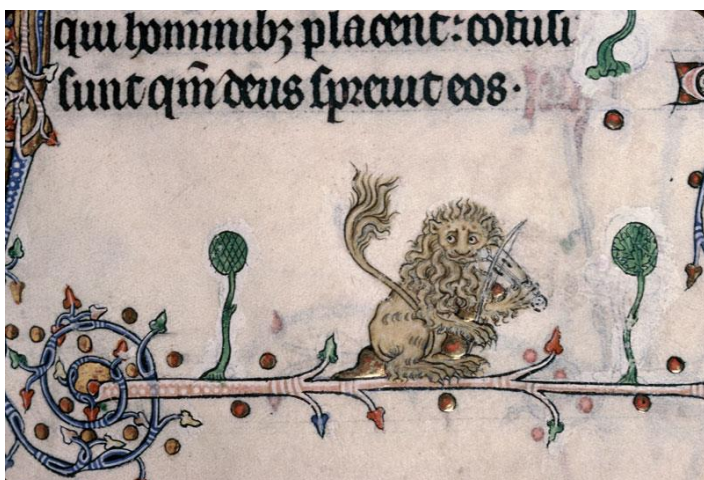 qui hominibꝫ placent: cofusi
sunt qm̄ deus spreuit eos·